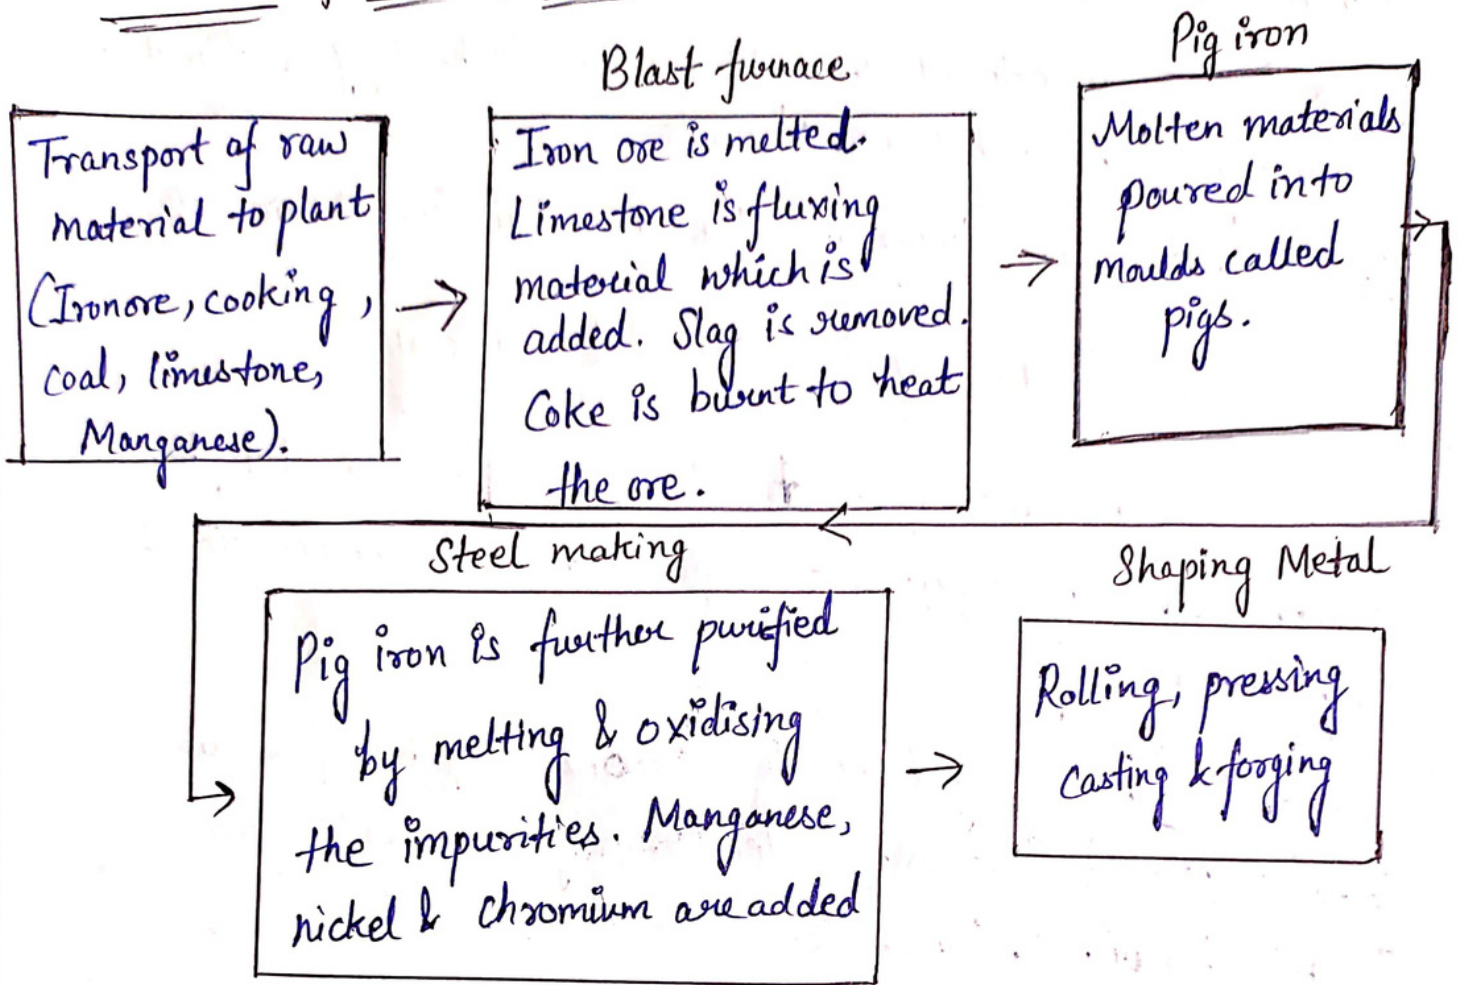 Blast furnace
Pig iron
Transport of raw
material to plant
(Ironore, cooking,
coal, limestone,
Manganese).
Iron ore is melted.
Limestone is fluxing
material which is
added. Slag is removed.
Coke is burnt to heat
the ore.
Molten materials
poured into
moulds called
pigs.
Steel making
Pig iron is further purified
by melting & oxidising
the impurities. Manganese,
nickel & chromium are added
Shaping Metal
Rolling, pressing
Casting & forging